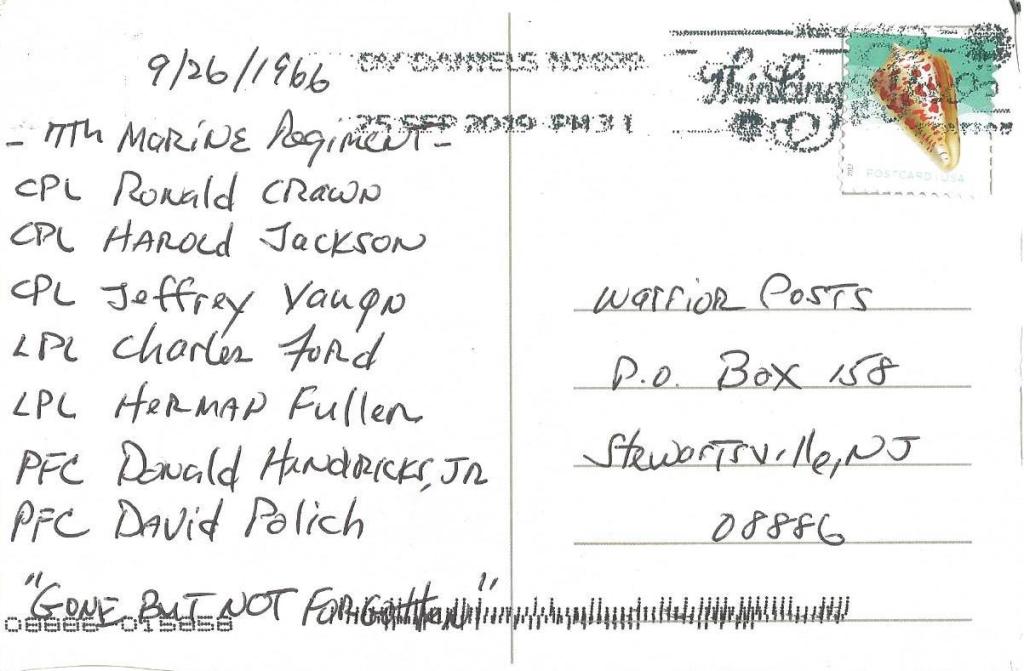 9/26/1966
- 7Th MARINE Regiment -
CPL Ronald CRAWN
CPL HAROLD JACKSON
CPL Jeffrey Vaugn
LPL Charles Ford
LPL HERMAN Fuller
PFC Donald HENDRICKS, JR
PFC DAVID Polich
"GONE BUT NOT FORGOTTEN"
08886 015858
DV DANIELS NJ
25 SEP 2019 PM 3 L
Thinking
POSTCARD USA
Warrior Posts
P.O. Box 158
Stewartsville, NJ
08886